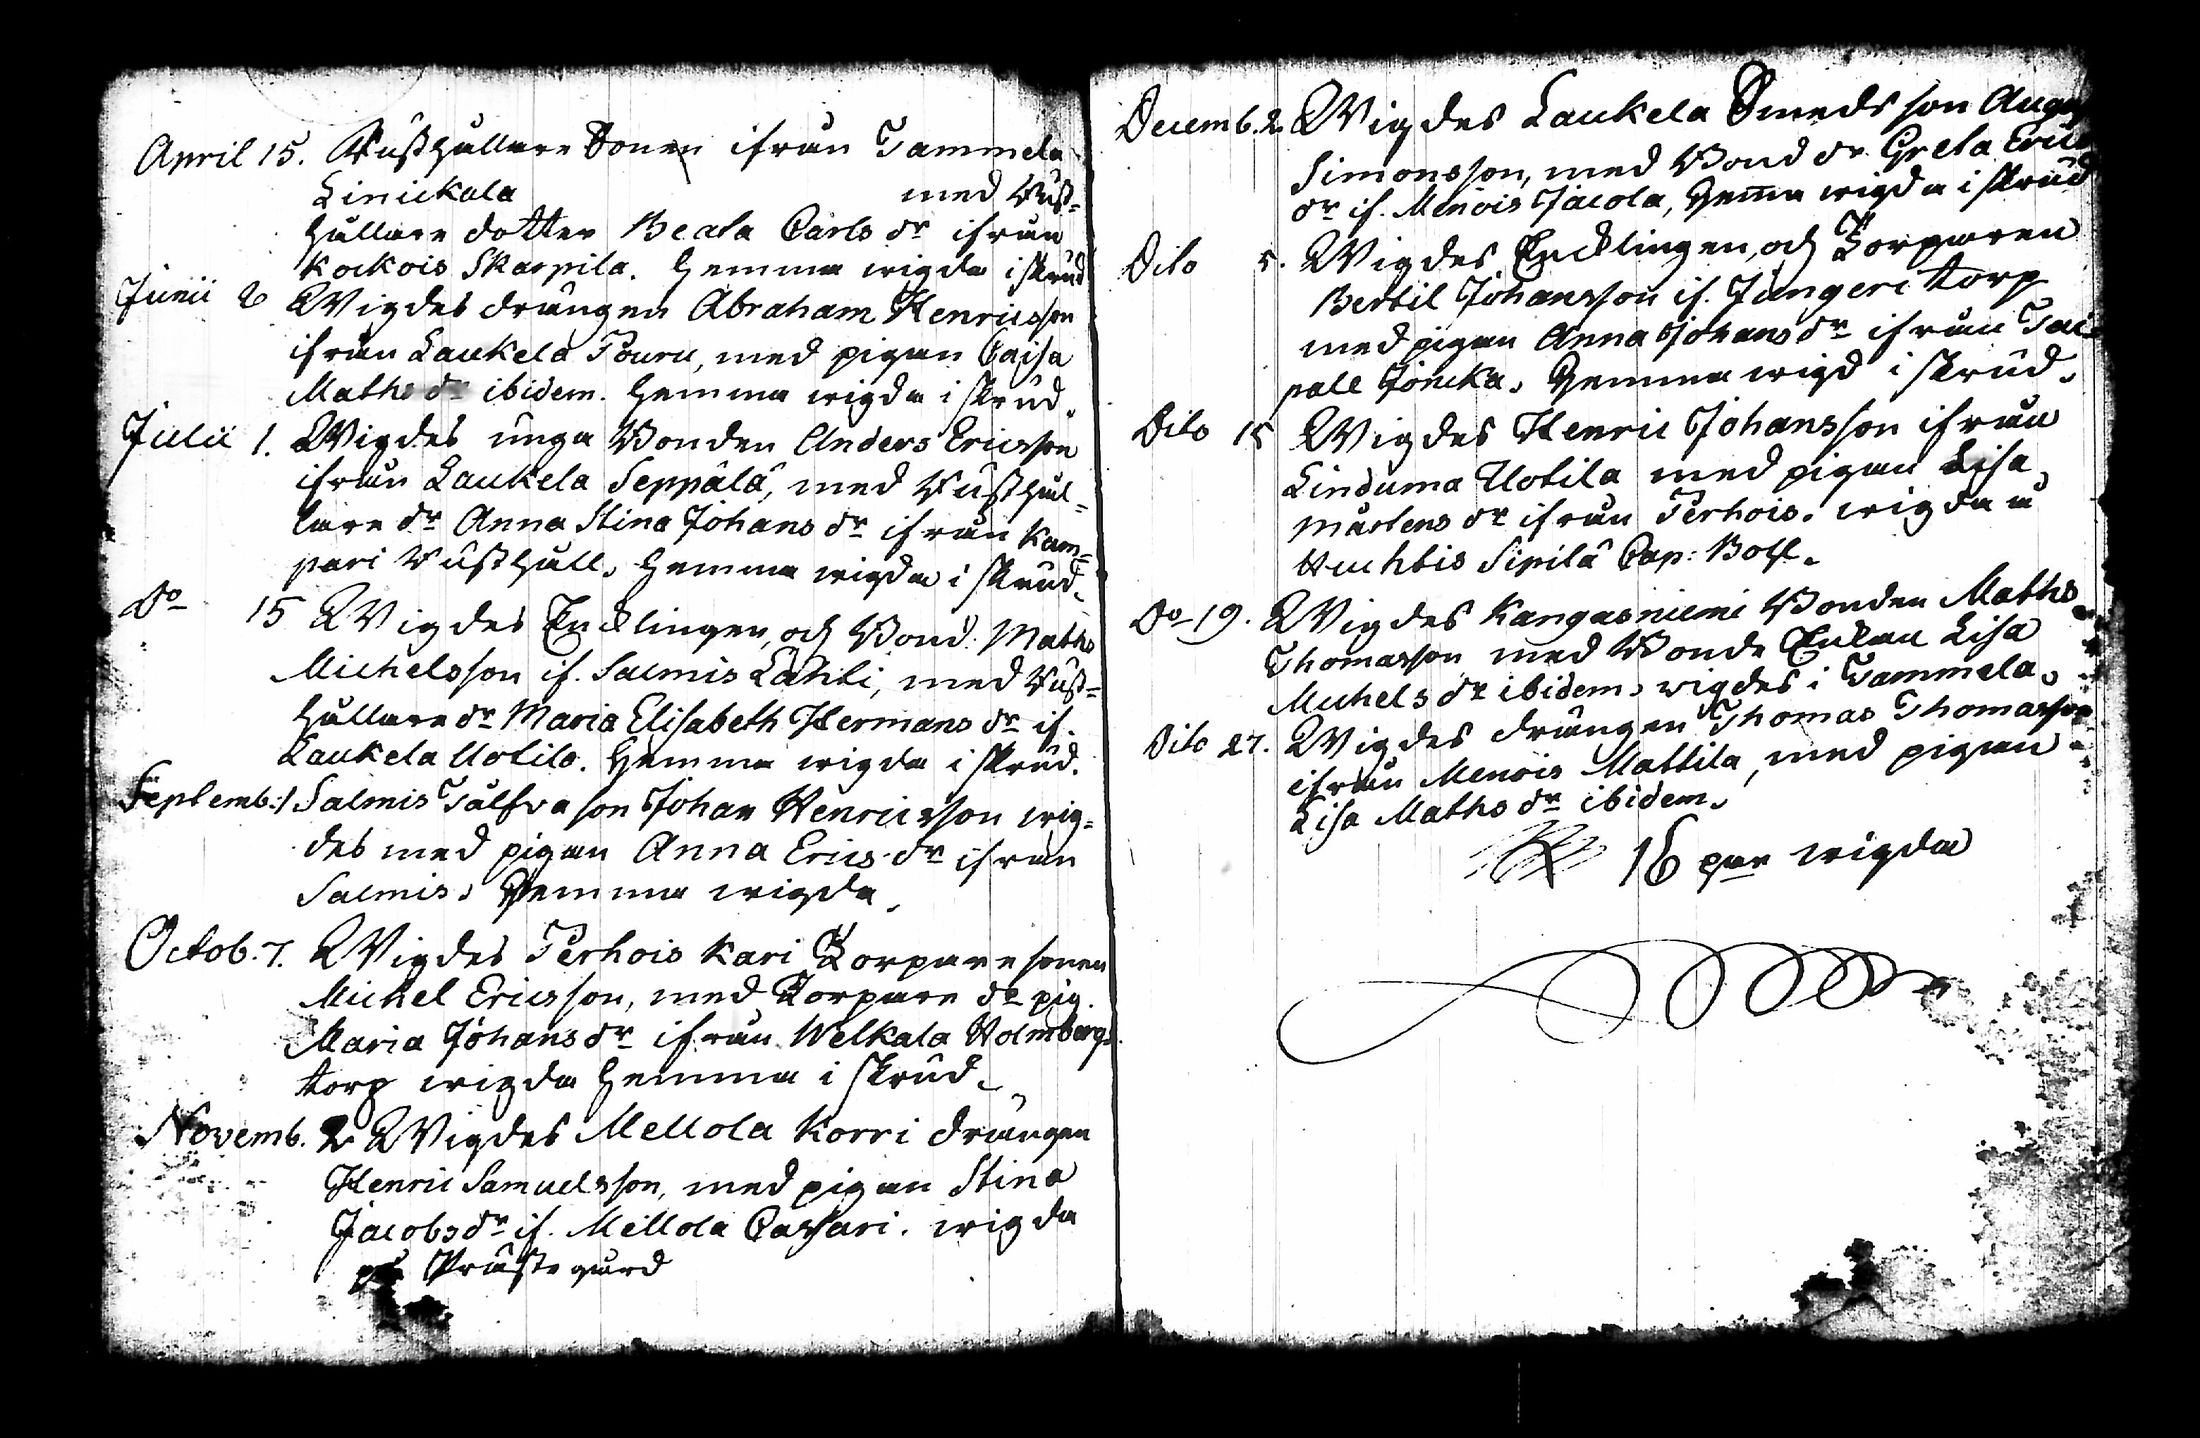 April 15. Rusthållare Sonen ifrån Tammela
Liniickala med Rust=
hållare dotter Beata Carls dr ifrån
Kockois Skarpila. hemma wigda i skrud
Junii 2 Wigdes drängen Abraham Henricsson
ifrån Laukela Pouru, med pigan Caisa
Maths dr ibidem. hemma wigda i skrud.
Julii 1. Wigdes unga Bonden Anders Ericsson
ifrån Laukela Seppälä, med Rusthål=
lare dr Anna Stina Johans dr ifrån Kam=
pari Rusthåll. hemma wigda i skrud.
Do 15 Wigdes Encklingen, och Bond. Maths
Michelsson if. Salmis Lahti, med Rust=
hållare dr Maria Elisabeth Hermans dr if.
Laukela Uotila. hemma wigda i skrud.
Septemb: 1 Salmis Tålfva son Johan Henricsson wig=
des med pigan Anna Erics dr ifrån
Salmis. hemma wigda.
Octob. 7. Wigdes Perhois Kari Torpare sonen
Michel Ericsson, med Torpare dr pig.
Maria Johans dr ifrån Welkala Holmbergs
torp wigda hemma i skrud.
Novemb. 2 Wigdes Mellola Korri drängen
Henric Samuelsson, med pigan Stina
Jacobs dr if. Mellola Cassari. wigda
på Prästegård
Decemb. 2. Wigdes Laukela Smeds son
Simonsson, med Bond dr Greta Erics
dr if. Menois Jacola, hemma wigda i skrud
Dito 5. Wigdes Encklingen, och Torparen
Bertil Johansson if. Jungeri torp
med pigan Anna Johans dr ifrån Tai=
pale Jöncka. hemma wigd i skrud.
Dito 15 Wigdes Henric Johansson ifrån
Linduma Uotila med pigan Lisa
Mårtens dr ifrån Perhois. wigda å
Huchtis Sipilä Cap: Boll.
Do 19. Wigdes Kangasniemi Bonden Maths
Thomasson med Bonde Enkan Lisa
Michels dr ibidem. wigdes i Tammela.
Dito 27. Wigdes drängen Thomas Thomasson
ifrån Menois Mattila, med pigan
Lisa Maths dr ibidem.
16 par wigda